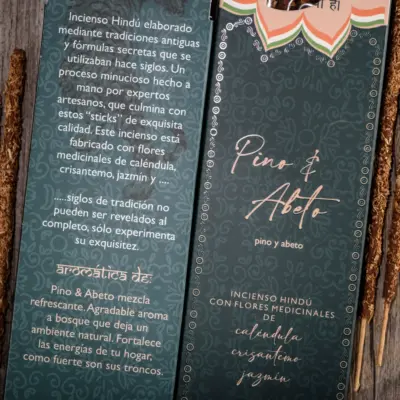 Incienso Hindú elaborado
mediante tradiciones antiguas
y fórmulas secretas que se
utilizaban hace siglos. Un
proceso minucioso hecho a
mano por expertos
artesanos, que culmina con
estos “sticks” de exquisita
calidad. Este incienso está
fabricado con flores
medicinales de caléndula,
crisantemo, jazmín y ....
.....siglos de tradición no
pueden ser revelados al
completo, sólo experimenta
su exquisitez.
aromática de:
Pino & Abeto mezcla
refrescante. Agradable aroma
a bosque que deja un
ambiente natural. Fortalece
las energías de tu hogar,
como fuerte son sus troncos.
Pino &
Abeto
pino y abeto
INCIENSO HINDÚ
CON FLORES MEDICINALES
DE
caléndula
crisantemo
jazmín